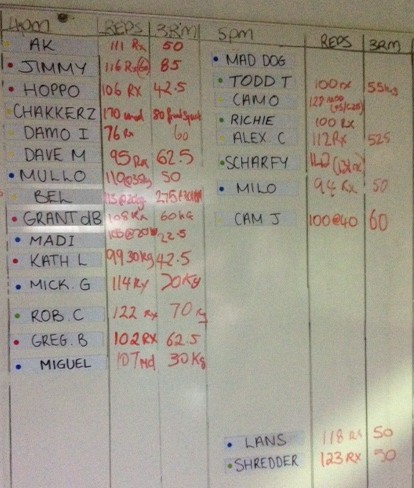 4pm REPS 3RM
AK 111 Rx 50
JIMMY 116 Rx 85
HOPPO 106 Rx 42.5
CHAKKERZ 170 md 80
DAMO I 76 Rx 60
DAVE M 95 Rx 62.5
MULLO 110@35kg 50
BEL
GRANT dB 108 Rx 60kg
MADI 22.5
KATH L 99 30kg 42.5
MICK. G 114 Rx 70kg
ROB. C 122 Rx 70 kg
GREG. B 102 Rx 62.5
MIGUEL 107 md 30kg
5pm REPS 3RM
MAD DOG
TODD T 100 rx 55kg
CAMO
RICHIE 100 Rx
ALEX. C 112 Rx 52.5
SCHARFY
MILO 94 Rx 50
CAM J 100@40 60
LANS 118 Rx 50
SHREDDER 123 Rx 50